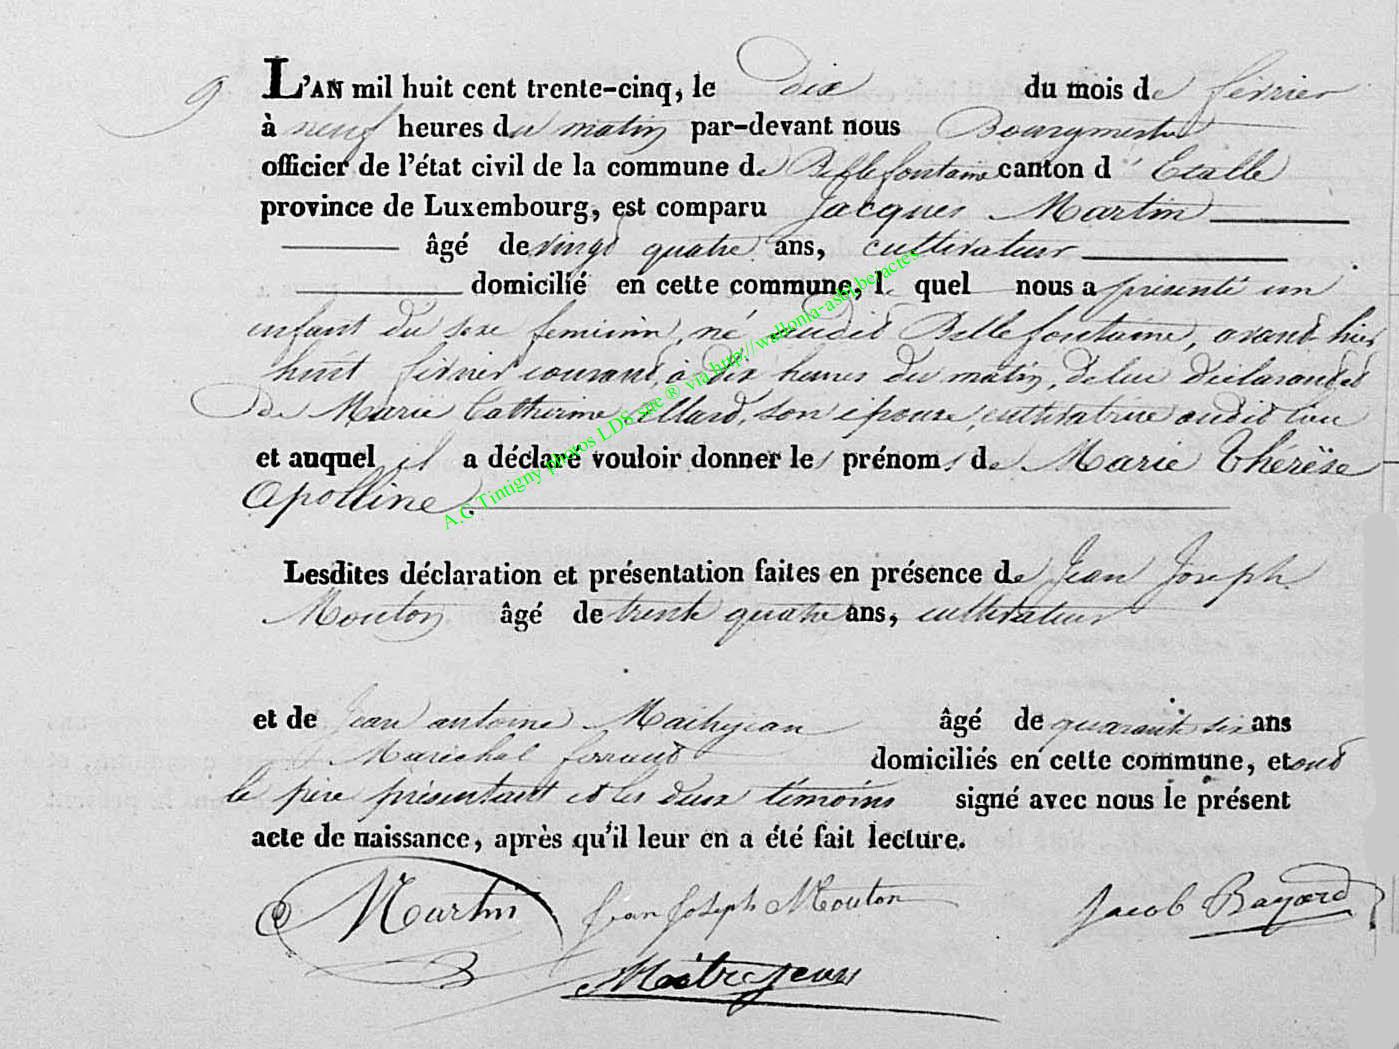 9
L'AN mil huit cent trente-cinq, le dix du mois de février
à neuf heures du matin par-devant nous Bourgmestre
officier de l'état civil de la commune de Bellefontaine canton d'Etalle
province de Luxembourg, est comparu Jacques Martin
âgé de vingt quatre ans, cultivateur
domicilié en cette commune, le quel nous a présenté un
enfant du sexe feminin, né audit Bellefontaine, avant hier
huit février courant, à dix heures du matin, de lui déclarant et
de Marie Catherine son épouse, cultivatrice audit lieu
et auquel il a déclaré vouloir donner les prénoms de Marie Therèse
Apolline.
A.C Tintigny photos LDS site ® via http://wallonia-asbl.be/actes
Lesdites déclaration et présentation faites en présence de Jean Joseph
Mouton âgé de trente quatre ans, cultivateur
et de Jean antoine âgé de quarante six ans
Maréchal ferrant domiciliés en cette commune, et ont
le père présentant et les deux témoins signé avec nous le présent
acte de naissance, après qu'il leur en a été fait lecture.
Martin Jean Joseph Mouton Jacob Bayard
Maitrejean